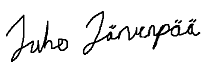 Juho Järvenpää